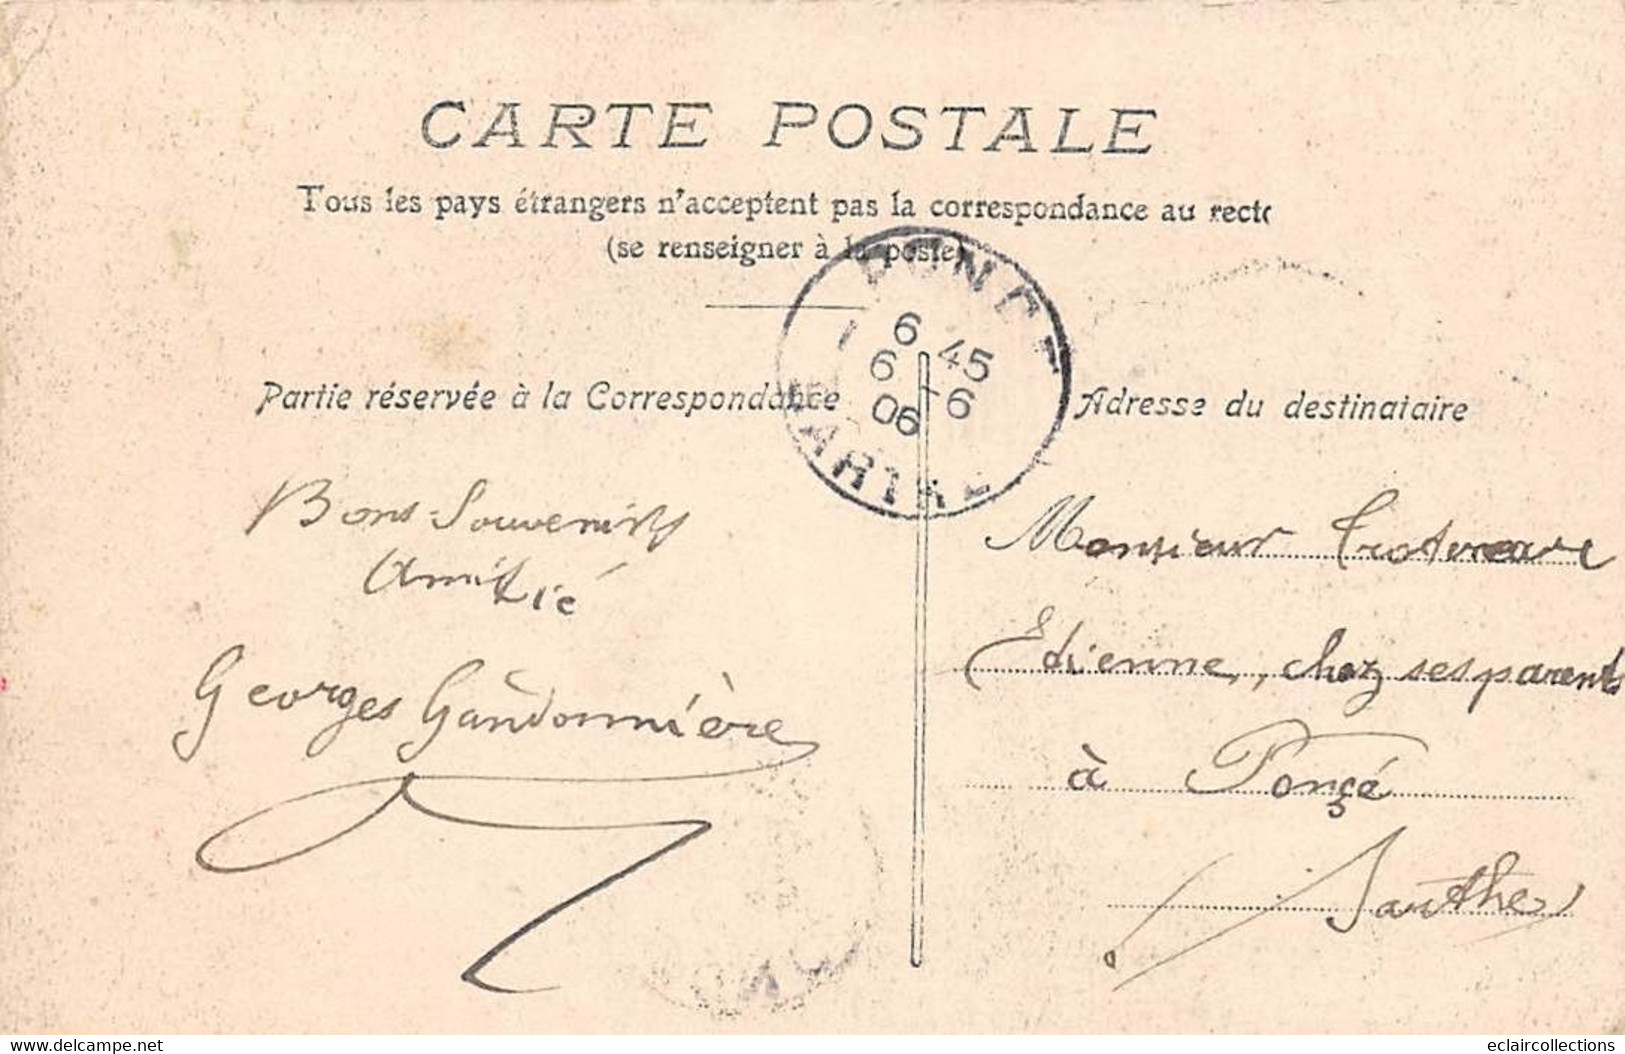 CARTE POSTALE
Tous les pays étrangers n'acceptent pas la correspondance au recto
(se renseigner à la poste)
PONCÉ
6 45
6 -6
06
SARTHE
Partie réservée à la Correspondance
Bons Souvenirs
Amitié
Georges Gandonnière
Adresse du destinataire
Monsieur
Etienne, chez ses parents
à Ponçé
Sarthe
www.delcampe.net
eclaircollections